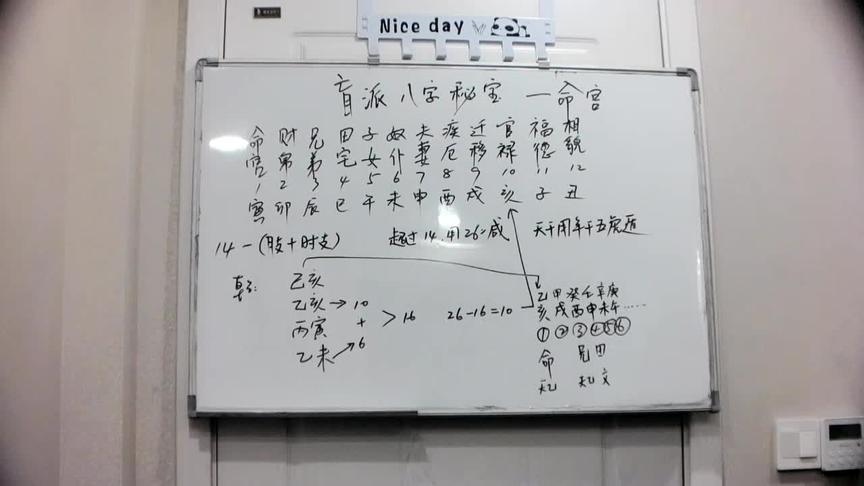 Nice day
盲派八字秘宝 — 命宫
命宫 财帛 兄弟 田宅 子女 奴仆 夫妻 疾厄 迁移 官禄 福德 相貌
1 2 3 4 5 6 7 8 9 10 11 12
寅 卯 辰 巳 午 未 申 酉 戌 亥 子 丑
14-(月支+时支) 超过14,用26减 天干用年干五虎遁
乾:
己亥
乙亥→10
丙寅 + >16 26-16=10
乙未→6
乙 甲 癸 壬 辛 庚
亥 戌 酉 申 未 午……
① ② ③ ④ ⑤ ⑥
命 兄 田
天乙 天乙 文